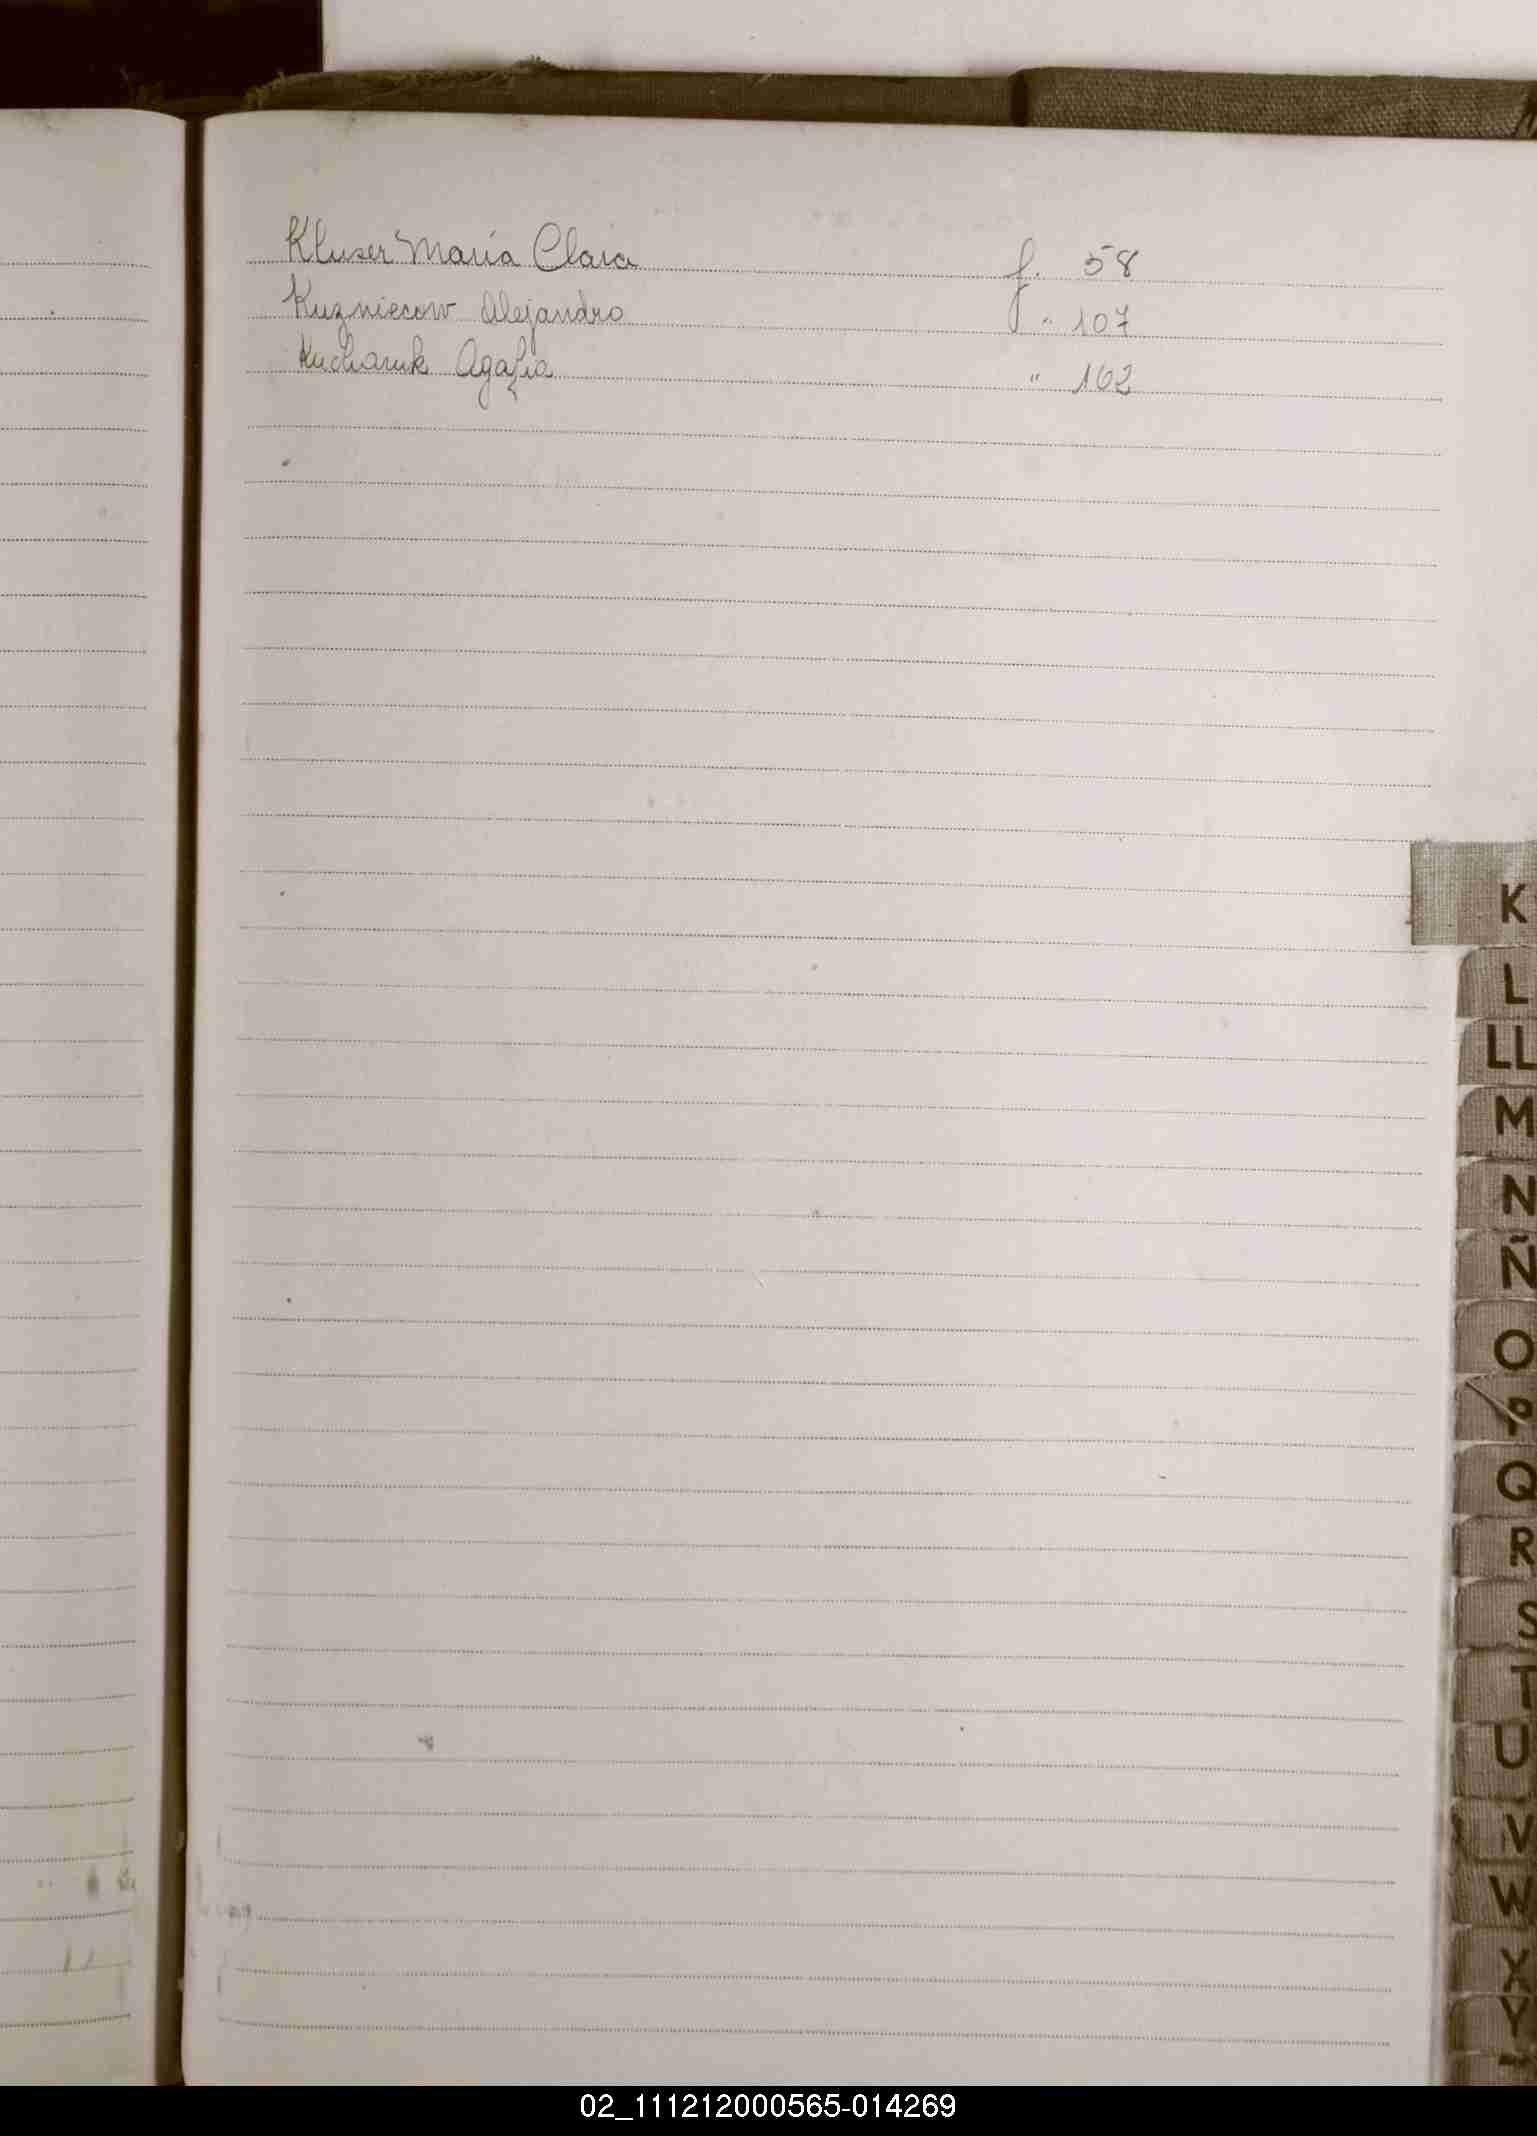 Kluser Maria Clara f. 58
Kuzniecow Alejandro " 107
Kucharuk Agafia " 162
K
L
LL
M
N
Ñ
O
P
Q
R
S
T
U
V
W
X
Y
02_111212000565-014269